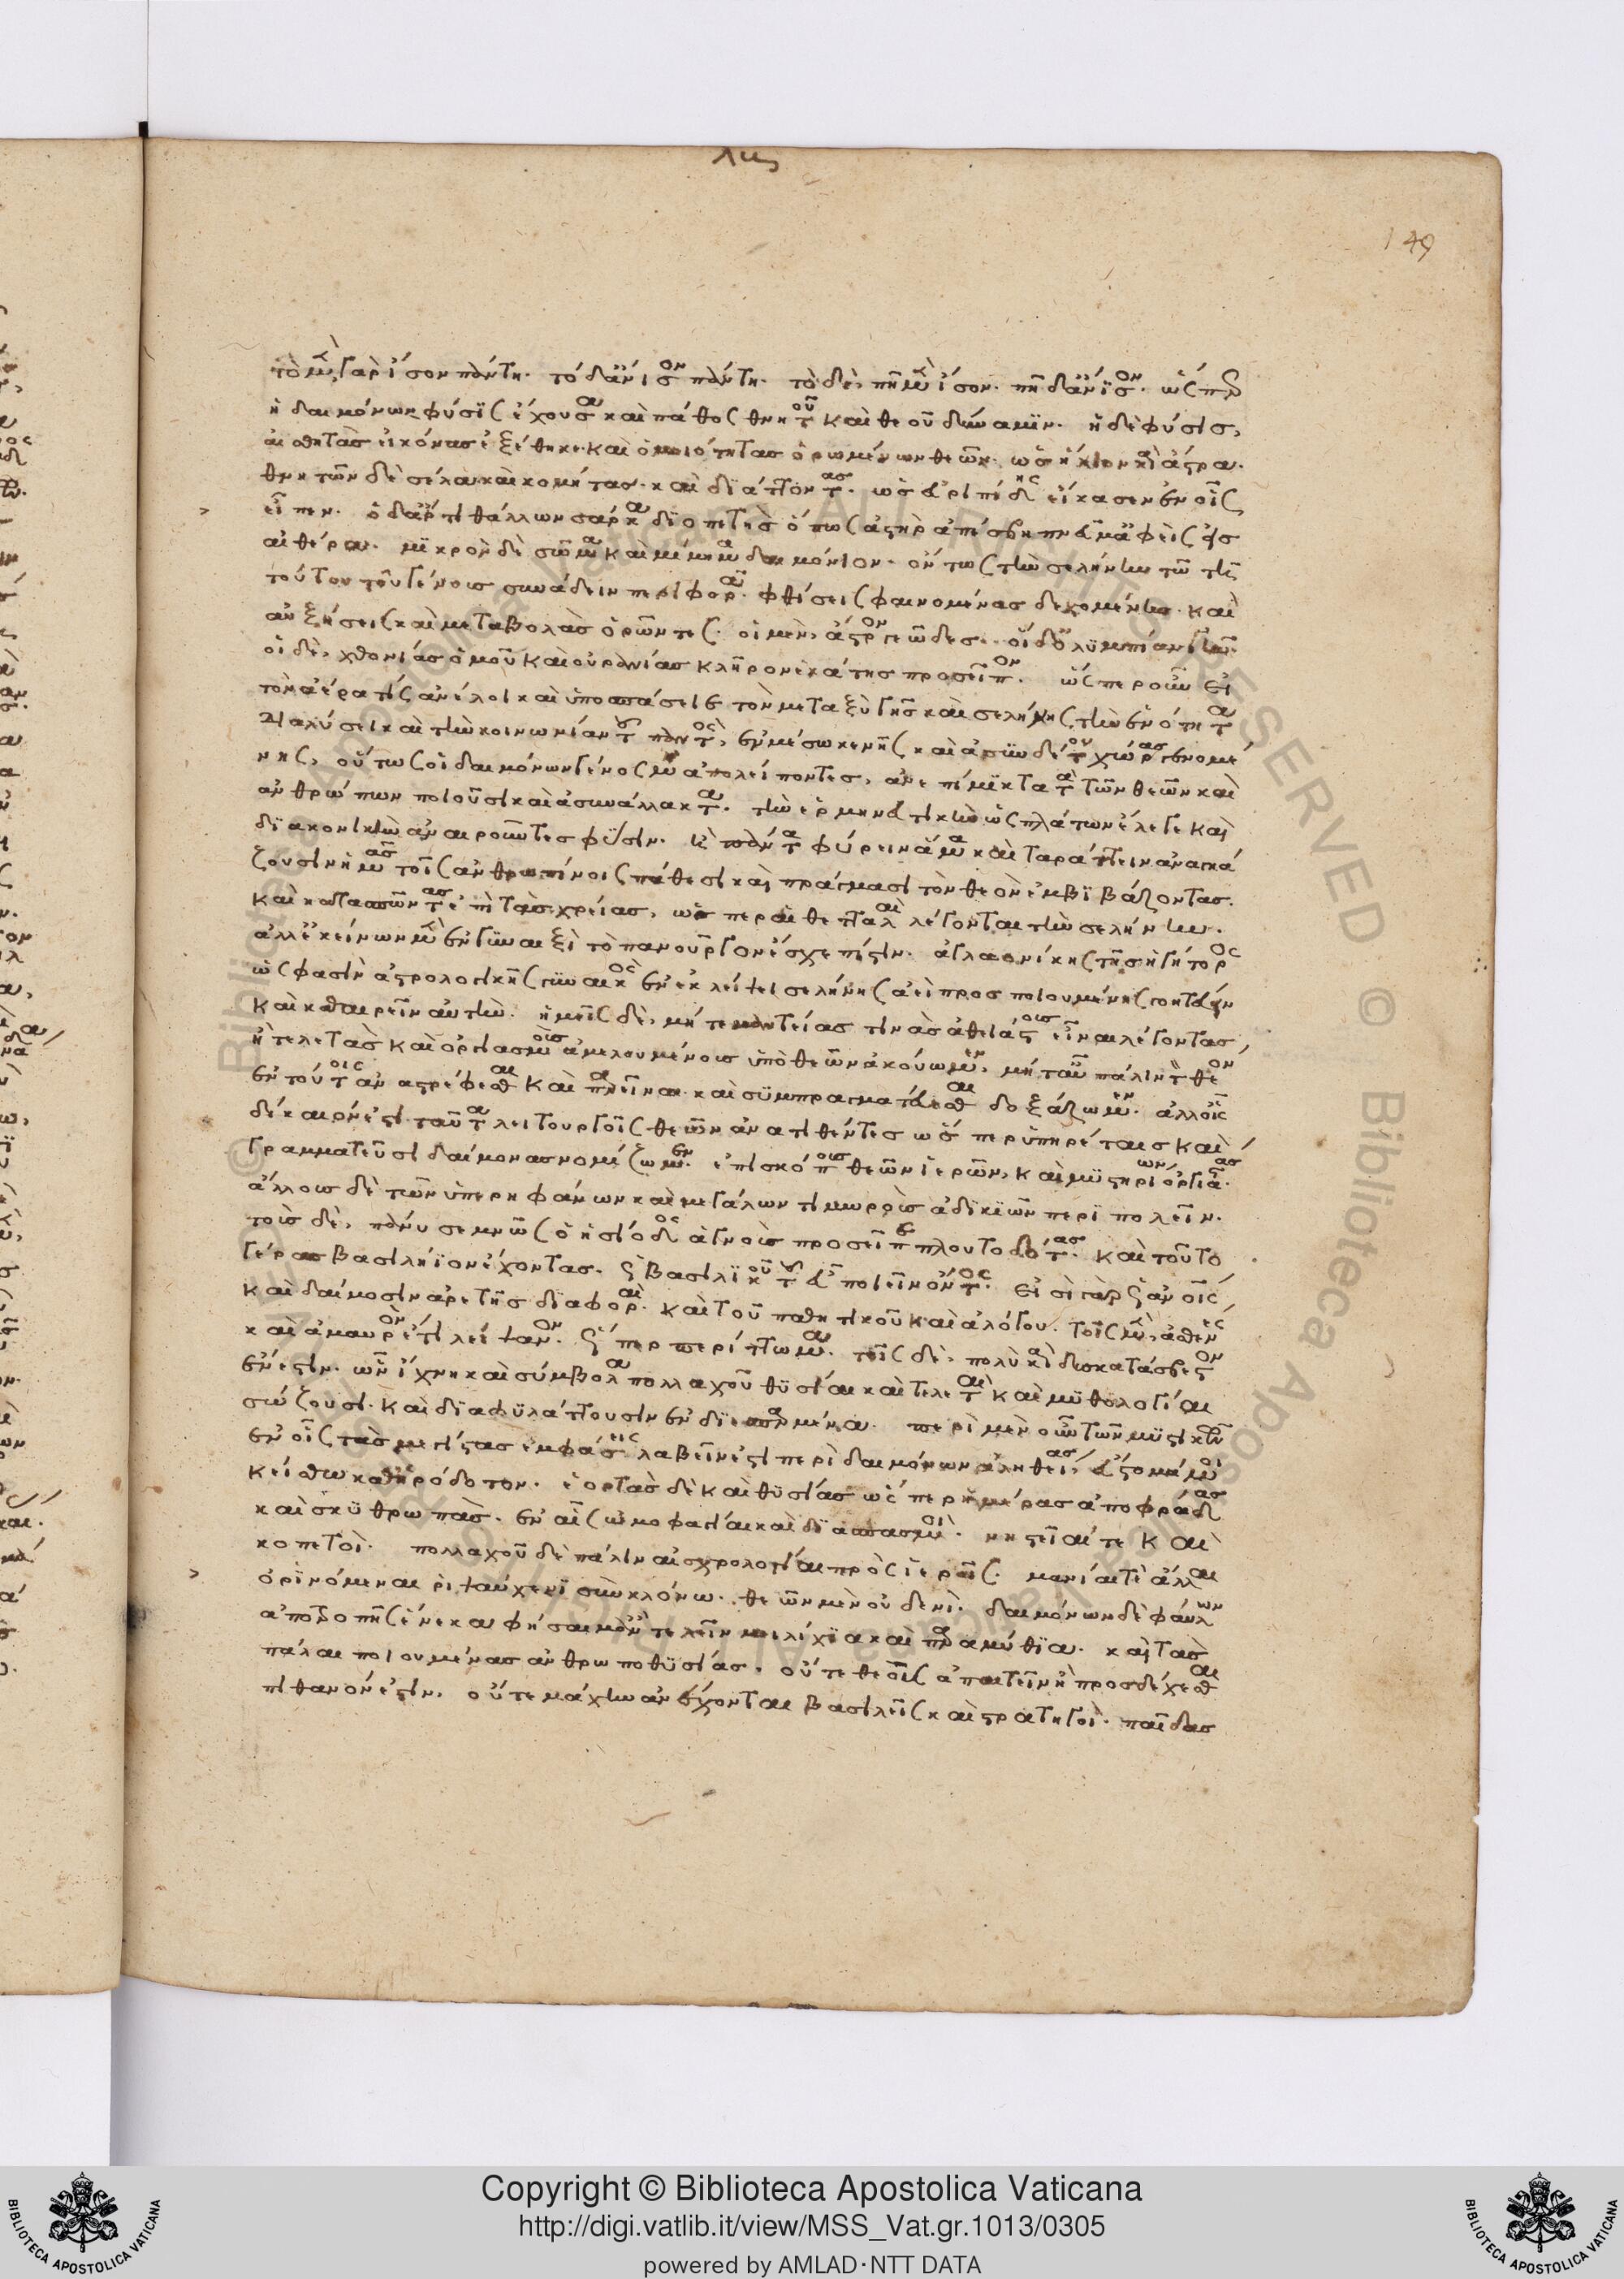 λης
149
τὸ μὲν γὰρ ἴσον πάντη. τὸ δ' ἄνισον πάντη. τὸ δὲ, πῆ μὲν ἴσον. πῆ δ' ἄνισον. ὥσπερ
ἡ δαιμόνων φύσις ἔχουσα καὶ πάθος θνητοῦ καὶ θεοῦ δύναμιν. ἡ δὲ φύσις,
αἰσθητὰς εἰκόνας ἐξέθηκε καὶ ὁμοιότητας ὁρωμένων θεῶν. ὡς ἥλιον καὶ ἄστρα.
θνητῶν δὲ σέλα καὶ κομήτας. καὶ διάττοντας. ὡς εὐριπίδης εἴκασεν ἐν οἷς
εἶπεν. ὁ δ' ἄρτι θάλλων σάρκα διοπετὴς ὅπως ἀστὴρ ἀπέσβη πνεῦμ' ἀφεὶς ἐς
αἰθέρα. μικρὸν δὲ σῶμα καὶ μίμημα δαιμόνιον. ὄντως τὴν σελήνην τῶ τῆς
τούτου τοῦ γένους συνάδειν περιφορᾶ. φθίσεις φαινομένας δεχομένην. καὶ
αὐξήσεις καὶ μεταβολὰς ὁρῶντες. οἱ μὲν, ἄστρον γεῶδες. οἱ δ' ὀλυμπίαν γῆν.
οἱ δὲ, χθονίας ὁμοῦ καὶ οὐρανίας κλῆρον ἑκάτης προσεῖπον. ὥσπερ οὖν εἰ
τὸν ἀέρα τίς ἀνέλοι καὶ ὑποσπάσειε τὸν μεταξὺ γῆς καὶ σελήνης, τὴν ἑνότητα
διαλύσει καὶ τὴν κοινωνίαν τοῦ παντὸς, ἐν μέσω κενῆς καὶ ἀσυνδέτου χώρας γενομέ
νης, οὕτως οἱ δαιμόνων γένος μὴ ἀπολείποντες, ἀνεπίμικτα τὰ τῶν θεῶν καὶ
ἀνθρώπων ποιοῦσι καὶ ἀσυνάλλακτα. τὴν ἑρμηνευτικὴν ὡς πλάτων ἔλεγε καὶ
διακονικὴν ἀναιροῦντες φύσιν. ἢ πάντα φύρειν ἅμα καὶ ταράττειν ἀναγκά
ζουσιν ἡμᾶς τοῖς ἀνθρωπίνοις πάθεσι καὶ πράγμασι τὸν θεὸν ἐμβιβάζοντας.
καὶ κατασπῶντας ἐπὶ τὰς χρείας, ὥσπερ αἱ θετταλαὶ λέγονται τὴν σελήνην.
ἀλλ' ἐκείνων μὲν ἐν γυναιξὶ τὸ πανοῦργον ἔσχε πίστιν. ἀγλαονίκης τῆς ἡγήτορος
ὥς φασιν ἀστρολογικῆς γυναικὸς ἐν ἐκλείψει σελήνης ἀεὶ προσποιουμένης γοητεύειν
καὶ καθαιρεῖν αὐτήν. ἡμεῖς δὲ, μήτε μαντείας τινὰς ἀθειάστους εἶναι λέγοντας,
ἢ τελετὰς καὶ ὀργιασμοὺς ἀμελουμένους ὑπὸ θεῶν ἀκούωμεν, μήτ' αὖ πάλιν τὸν θεὸν
ἐν τούτοις ἀναστρέφεσθαι καὶ παρεῖναι. καὶ συμπραγματεύεσθαι δοξάζωμεν. ἀλλ' οἷς
δίκαιόν ἐστι ταῦτα λειτουργοῖς θεῶν ἀνατιθέντες ὥσπερ ὑπηρέταις καὶ
γραμματεῦσι δαίμονας νομίζωμεν. ἐπισκόπους θεῶν ἱερῶν, καὶ μυστηρίων ὀργιαστάς.
ἄλλους δὲ τῶν ὑπερηφάνων καὶ μεγάλων τιμωροὺς ἀδικιῶν περιπολεῖν.
τοὺς δὲ, πάνυ σεμνῶς ὁ ἡσίοδος ἁγνοὺς προσεῖπε πλουτοδότας. καὶ τοῦτο
γέρας βασιλήϊον ἔχοντας. ὡς βασιλικοῦ τοῦ εὖ ποιεῖν ὄντος. εἰσὶ γὰρ ὡς ἀν οἷς
καὶ δαίμοσιν ἀρετῆς διαφοραί. καὶ τοῦ παθητικοῦ καὶ ἀλόγου. τοῖς μὲν, ἀσθενὲς
καὶ ἀμαυρὸν ἔτι λείψανον. ὥσπερ περίττωμα. τοῖς δὲ, πολὺ καὶ δυσκατάσβεστον
ἔνεστιν. ὧν ἴχνη καὶ σύμβολα πολλαχοῦ θυσίαι καὶ τελεταὶ καὶ μυθολογίαι
σώζουσι. καὶ διαφυλάττουσιν ἐνδιεσπαρμένα. περὶ μὲν οὖν τῶν μυστικῶν
ἐν οἷς τὰς μεγίστας ἐμφάσεις λαβεῖν ἐστι περὶ δαιμόνων ἀληθείας, εὔστομά μοι
κείσθω καθ' ἡρόδοτον. ἑορτὰς δὲ καὶ θυσίας ὥσπερ ἡμέρας ἀποφράδας
καὶ σκυθρωπὰς. ἐν αἷς ὠμοφαγίαι καὶ διασπασμοὶ. νηστεῖαί τε καὶ
κοπετοὶ. πολλαχοῦ δὲ πάλιν αἰσχρολογίαι πρὸς ἱεροῖς. μανίαι τὲ ἄλλαι
ὀρινόμεναι ῥιψαύχενι σὺν κλόνω. θεῶν μὲν οὐδενὶ. δαιμόνων δὲ φαύλων
ἀποτροπῆς ἕνεκα φήσαιμ' ἂν τελεῖν μειλίχια καὶ παραμύθια. καὶ τὰς
πάλαι ποιουμένας ἀνθρωποθυσίας. οὔτε θεοῖς ἀπαιτεῖν ἢ προσδέχεσθαι
πιθανόν ἐστιν, οὔτε μάτην ἂν ἐδέχονται βασιλεῖς καὶ στρατηγοὶ. παῖδας
© Biblioteca Apostolica Vaticana
Copyright © Biblioteca Apostolica Vaticana
http://digi.vatlib.it/view/MSS_Vat.gr.1013/0305
powered by AMLAD·NTT DATA
BIBLIOTECA APOSTOLICA VATICANA
BIBLIOTECA APOSTOLICA VATICANA